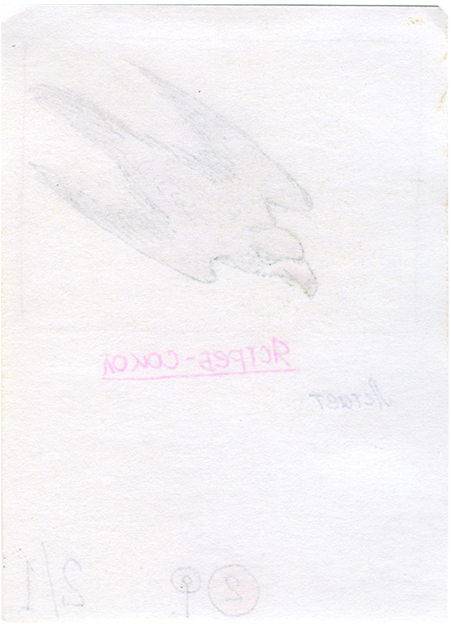 Ястреб-сокол
Летает
2